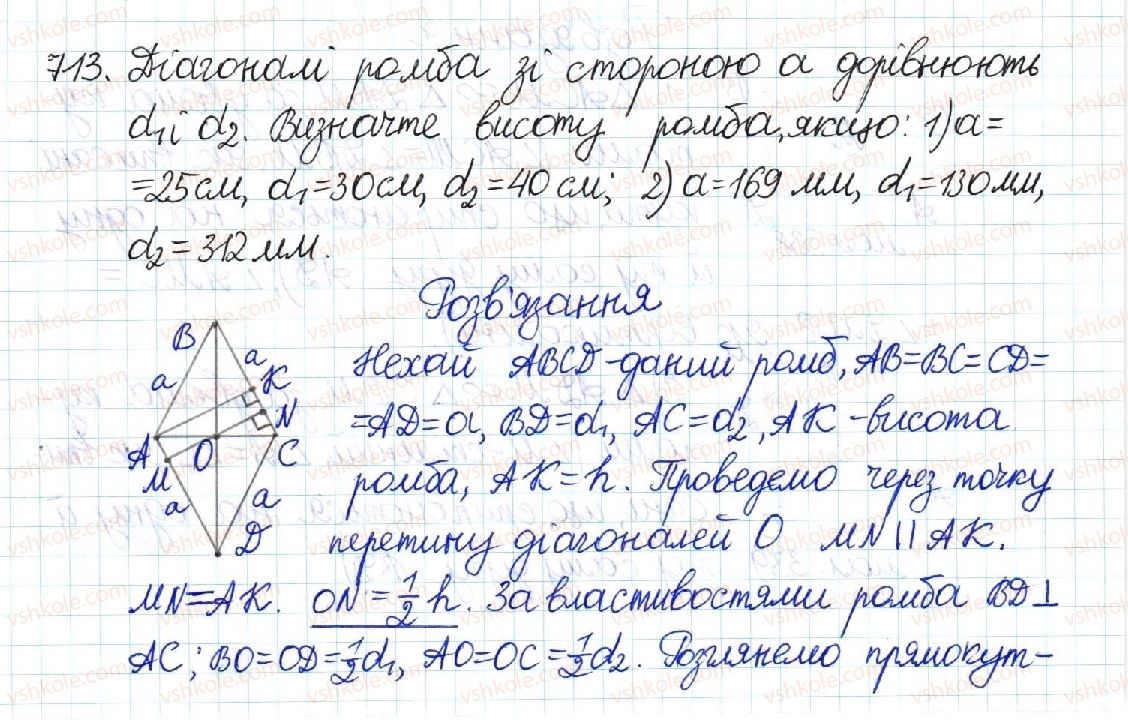 713. Діагоналі ромба зі стороною a дорівнюють
d₁ і d₂. Визначте висоту ромба, якщо: 1) a=
=25 см, d₁=30 см, d₂=40 см; 2) a=169 мм, d₁=130 мм,
d₂=312 мм.
Розв'язання
B
a
a
K
N
A
O
C
M
a
a
D
Нехай ABCD-даний ромб, AB=BC=CD=
=AD=a, BD=d₁, AC=d₂, AK-висота
ромба, AK=h. Проведемо через точку
перетину діагоналей O MN||AK.
MN=AK. ON=1/2 h. За властивостями ромба BD⊥
AC; BO=OD=1/2 d₁, AO=OC=1/2 d₂. Розглянемо прямокут-